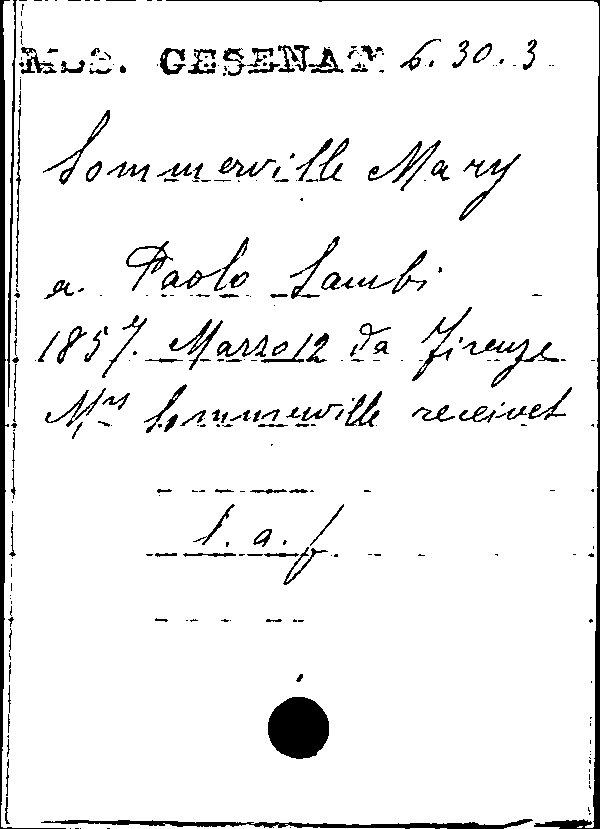 Mss. CESENAT. 6.30.3
Sommerville Mary
a. Paolo Sambi
1857. Marzo 12 da Firenze
Mrs Sommerville receivet
l. a. f.